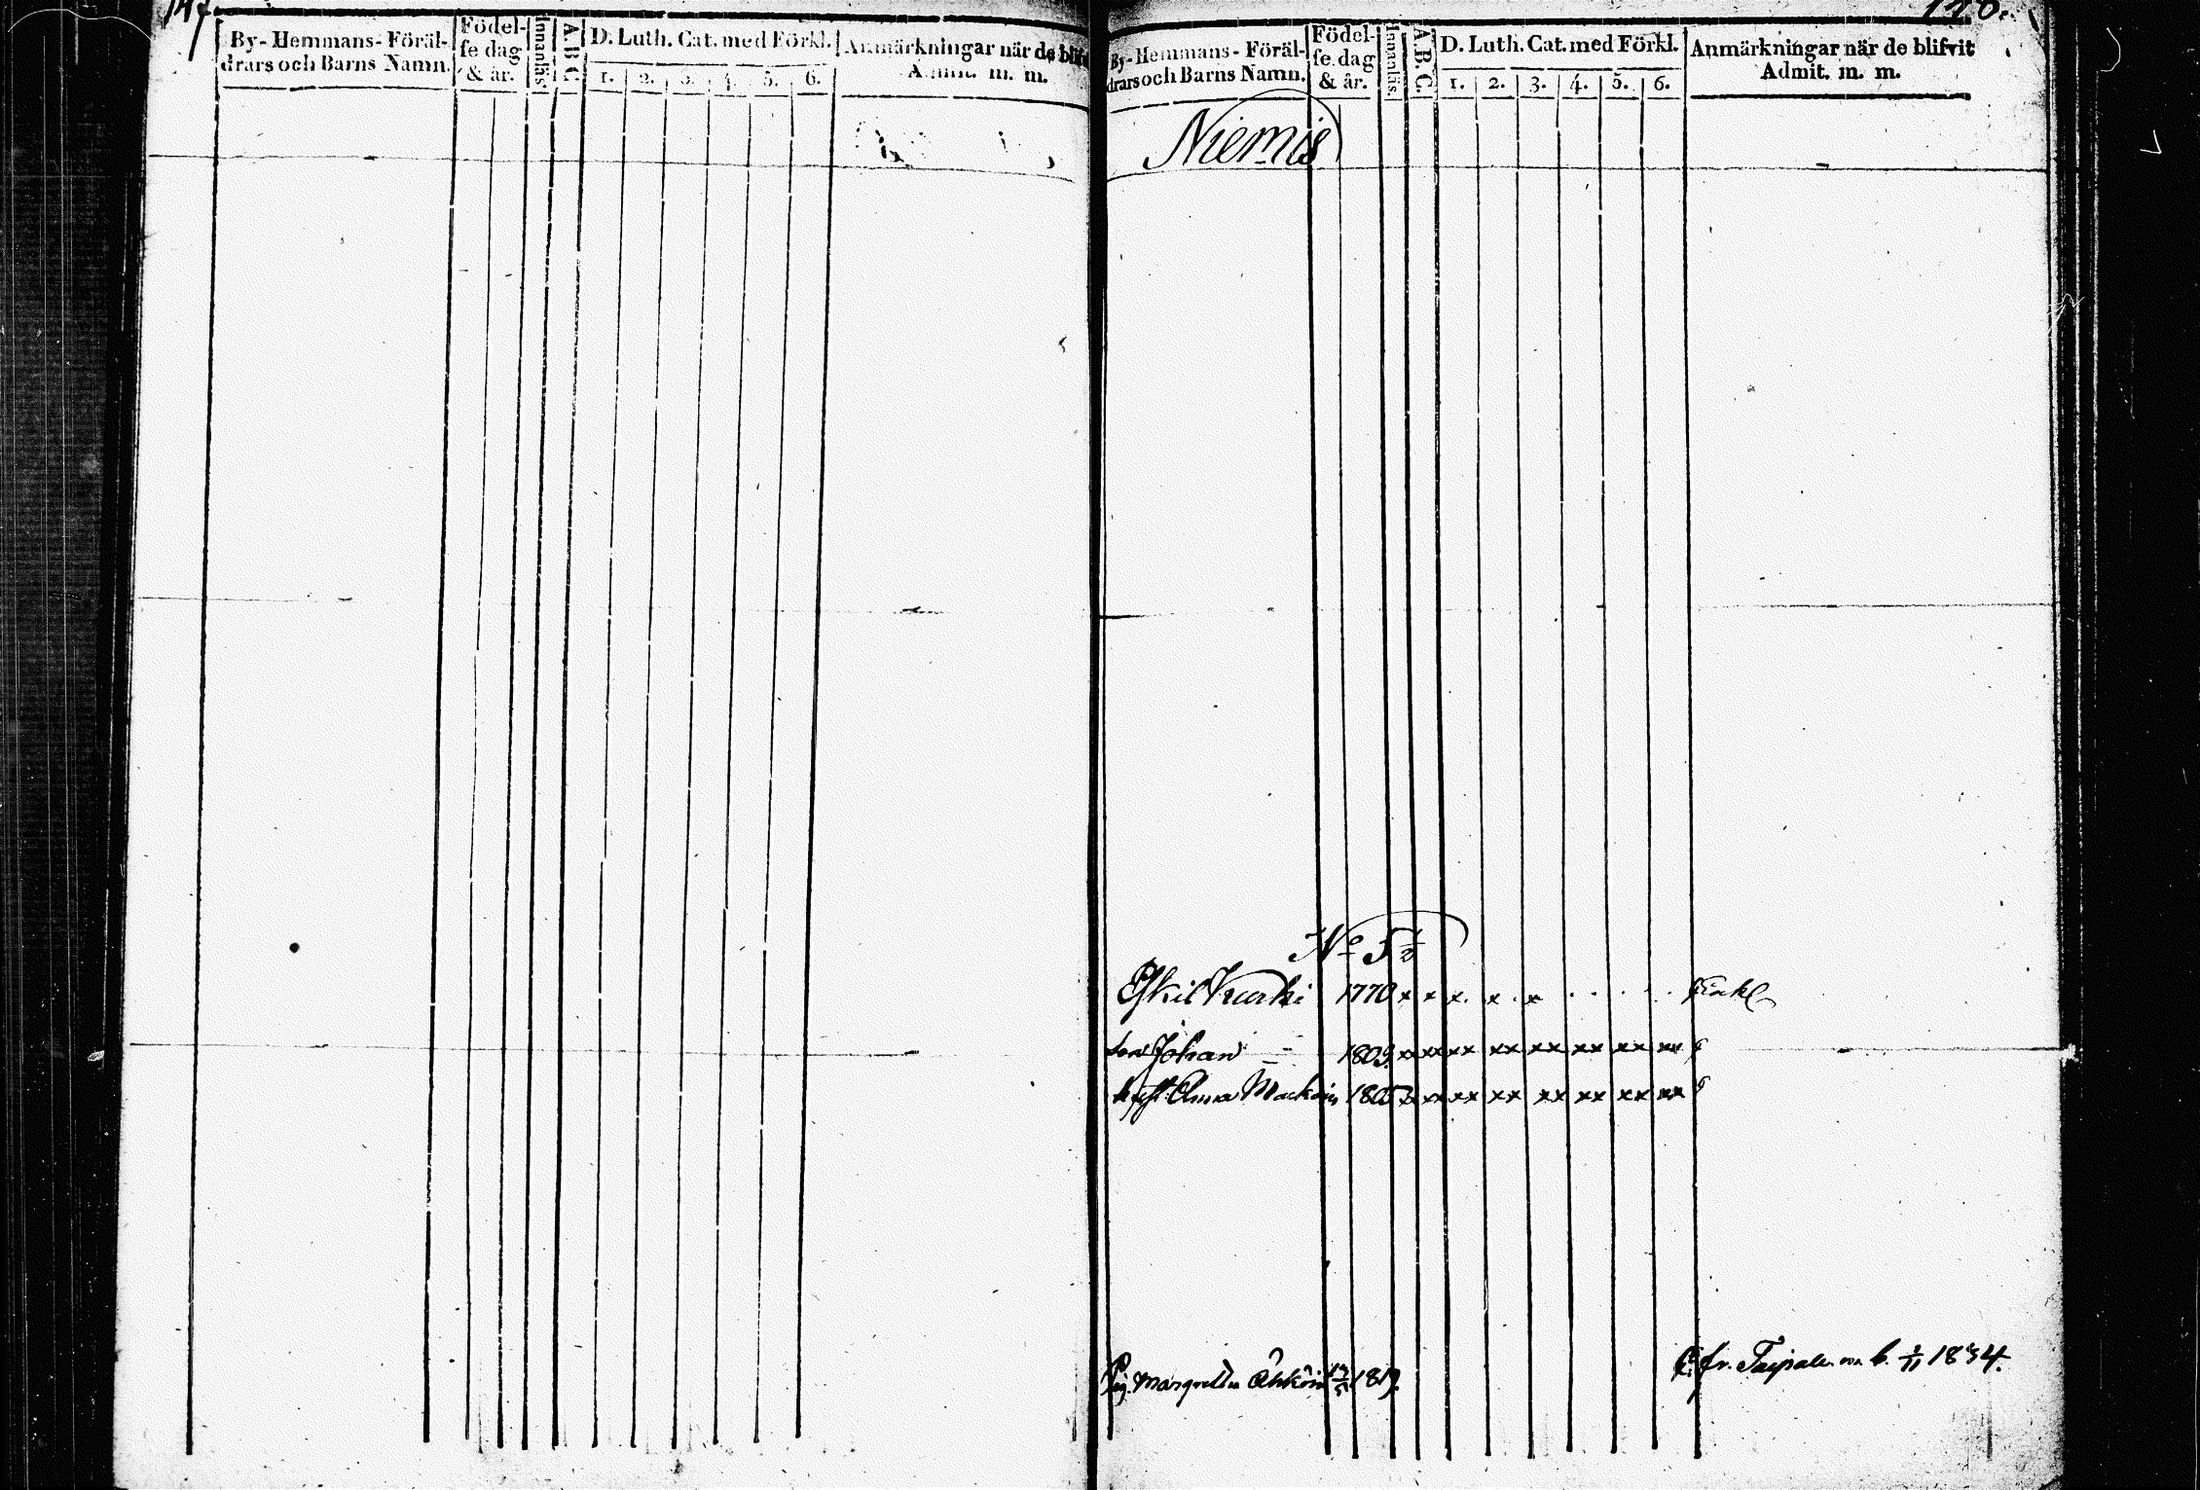 147.
By- Hemmans- Föräl-
drars och Barns Namn.
Födel-
se dag
& år.
Innanläs.
A B C
D. Luth. Cat. med Förkl.
1. 2. 3. 4. 5. 6.
Anmärkningar när de blifv
Admit. m. m.
By- Hemmans- Föräl-
drars och Barns Namn.
Födel-
se dag
& år.
Innanläs.
A. B. C.
D. Luth. Cat. med Förkl.
1. 2. 3. 4. 5. 6.
Anmärkningar när de blifvit
Admit. m. m.
Niemis
No 5
Eskil Kurki 1770 x x x. x. x
Son Johan 1803. xx xx xx xx xx xx xx xx
Anna 1805 xx xx xx xx xx xx xx
Pig. Margretha 1819.
fr. Taipale 1834.